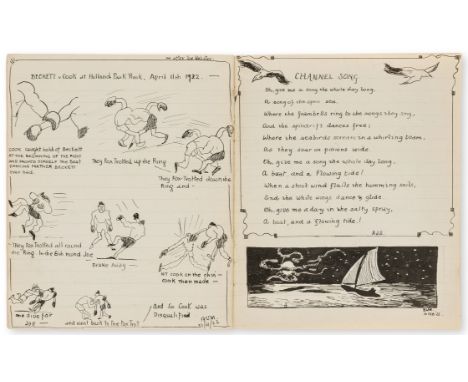 as after Joe Webster.
BECKETT v Cook at Holland Park Rink. April 11th 1922. —
COOK caught hold of Beckett
AT THE BEGINNING OF THE FIGHT
DANCING PARTNER BECKETT
EVER HAD.
They Fox Trotted up the Ring
They Fox-Trotted down the
Ring and —
— They Fox Trotted all round
the Ring. In the End round Joe
Broke Away —
HIT COOK on the chin —
COOK then made —
one side for
Joe —
and went back to Fox Fox Trot
And So Cook was
Disqualified
CHANNEL SONG
Oh, give me a song the whole day long.
A song of the open sea.
Where the gunnells ring to the songs they sing,
And the spindrift dances free;
Where the seabirds scream in a whirling team.
As they soar on pinions wide.
Oh, give me a song the whole day long,
A boat and a flowing tide!
When a stout wind flails the humming sails,
And the white wings dance & glide
Oh, give me a day in the salty spray,
A boat, and a flowing tide!